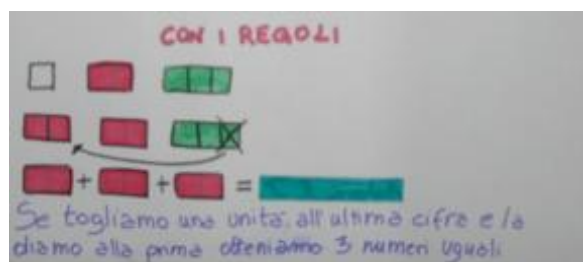 CON I REGOLI
+ + =
Se togliamo una unità all'ultima cifra e la
diamo alla prima otteniamo 3 numeri uguali